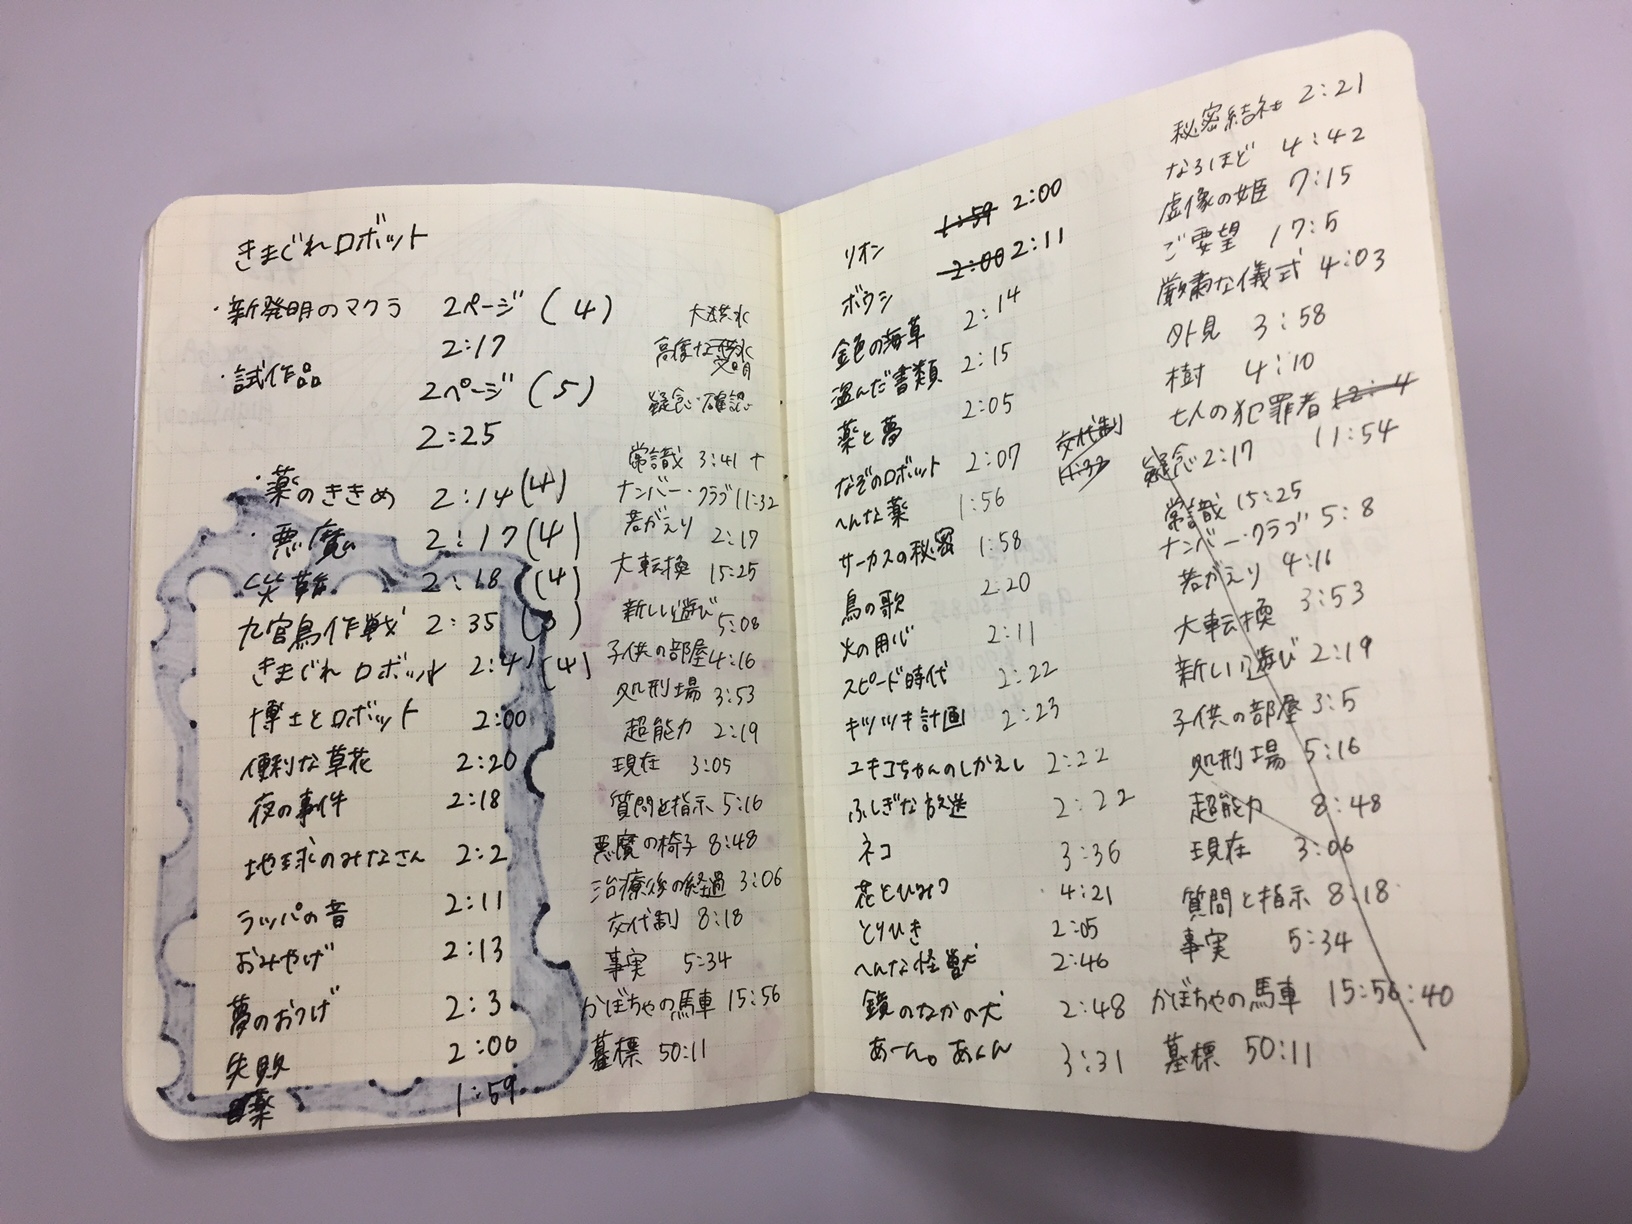 きまぐれロボット
・新発明のマクラ 2ページ (4)
2:17
・試作品 2ページ (5)
2:25
・薬のききめ 2:14 (4)
・悪魔 2:17 (4)
災難 2:18 (4)
九官鳥作戦 2:35
きまぐれロボット 2:41 (4)
博士とロボット 2:00
便利な草花 2:20
夜の事件 2:18
地球のみなさん 2:2
ラッパの音 2:11
おみやげ 2:13
夢のおつげ 2:3
失敗 2:00
薬 1:59
大洪水
高度な
疑惑 確認
常識 3:41 +
ナンバー・クラブ 11:32
若がえり 2:17
大転換 15:25
新しい遊び 5:08
子供の部屋 4:16
処刑場 3:53
超能力 2:19
現在 3:05
質問と指示 5:16
悪魔の椅子 8:48
治療後の経過 3:06
交代制 8:18
事実 5:34
かぼちゃの馬車 15:56
墓標 50:11
リオン 1:59 2:00
ボウシ 2:00 2:11
金色の海草 2:14
盗んだ書類 2:15
薬と夢 2:05
なぞのロボット 2:07
へんな薬 1:56
サーカスの秘密 1:58
鳥の歌 2:20
火の用心 2:11
スピード時代 2:22
キツツキ計画 2:23
ユキコちゃんのしかえし 2:22
ふしぎな放送 2:22
ネコ 3:36
花とひみつ 4:21
とりひき 2:05
へんな怪獣 2:46
鏡のなかの犬 2:48
あーん。あーん 3:31
交代制
11:32
秘密結社 2:21
なるほど 4:42
虚像の姫 7:15
ご要望 17:5
厳粛な儀式 4:03
外見 3:58
樹 4:10
七人の犯罪者
11:54
疑惑 2:17
常識 15:25
ナンバー・クラブ 5:8
若がえり 4:16
大転換 3:53
新しい遊び 2:19
子供の部屋 3:5
処刑場 5:16
超能力 8:48
現在 3:06
質問と指示 8:18
事実 5:34
かぼちゃの馬車 15:56:40
墓標 50:11